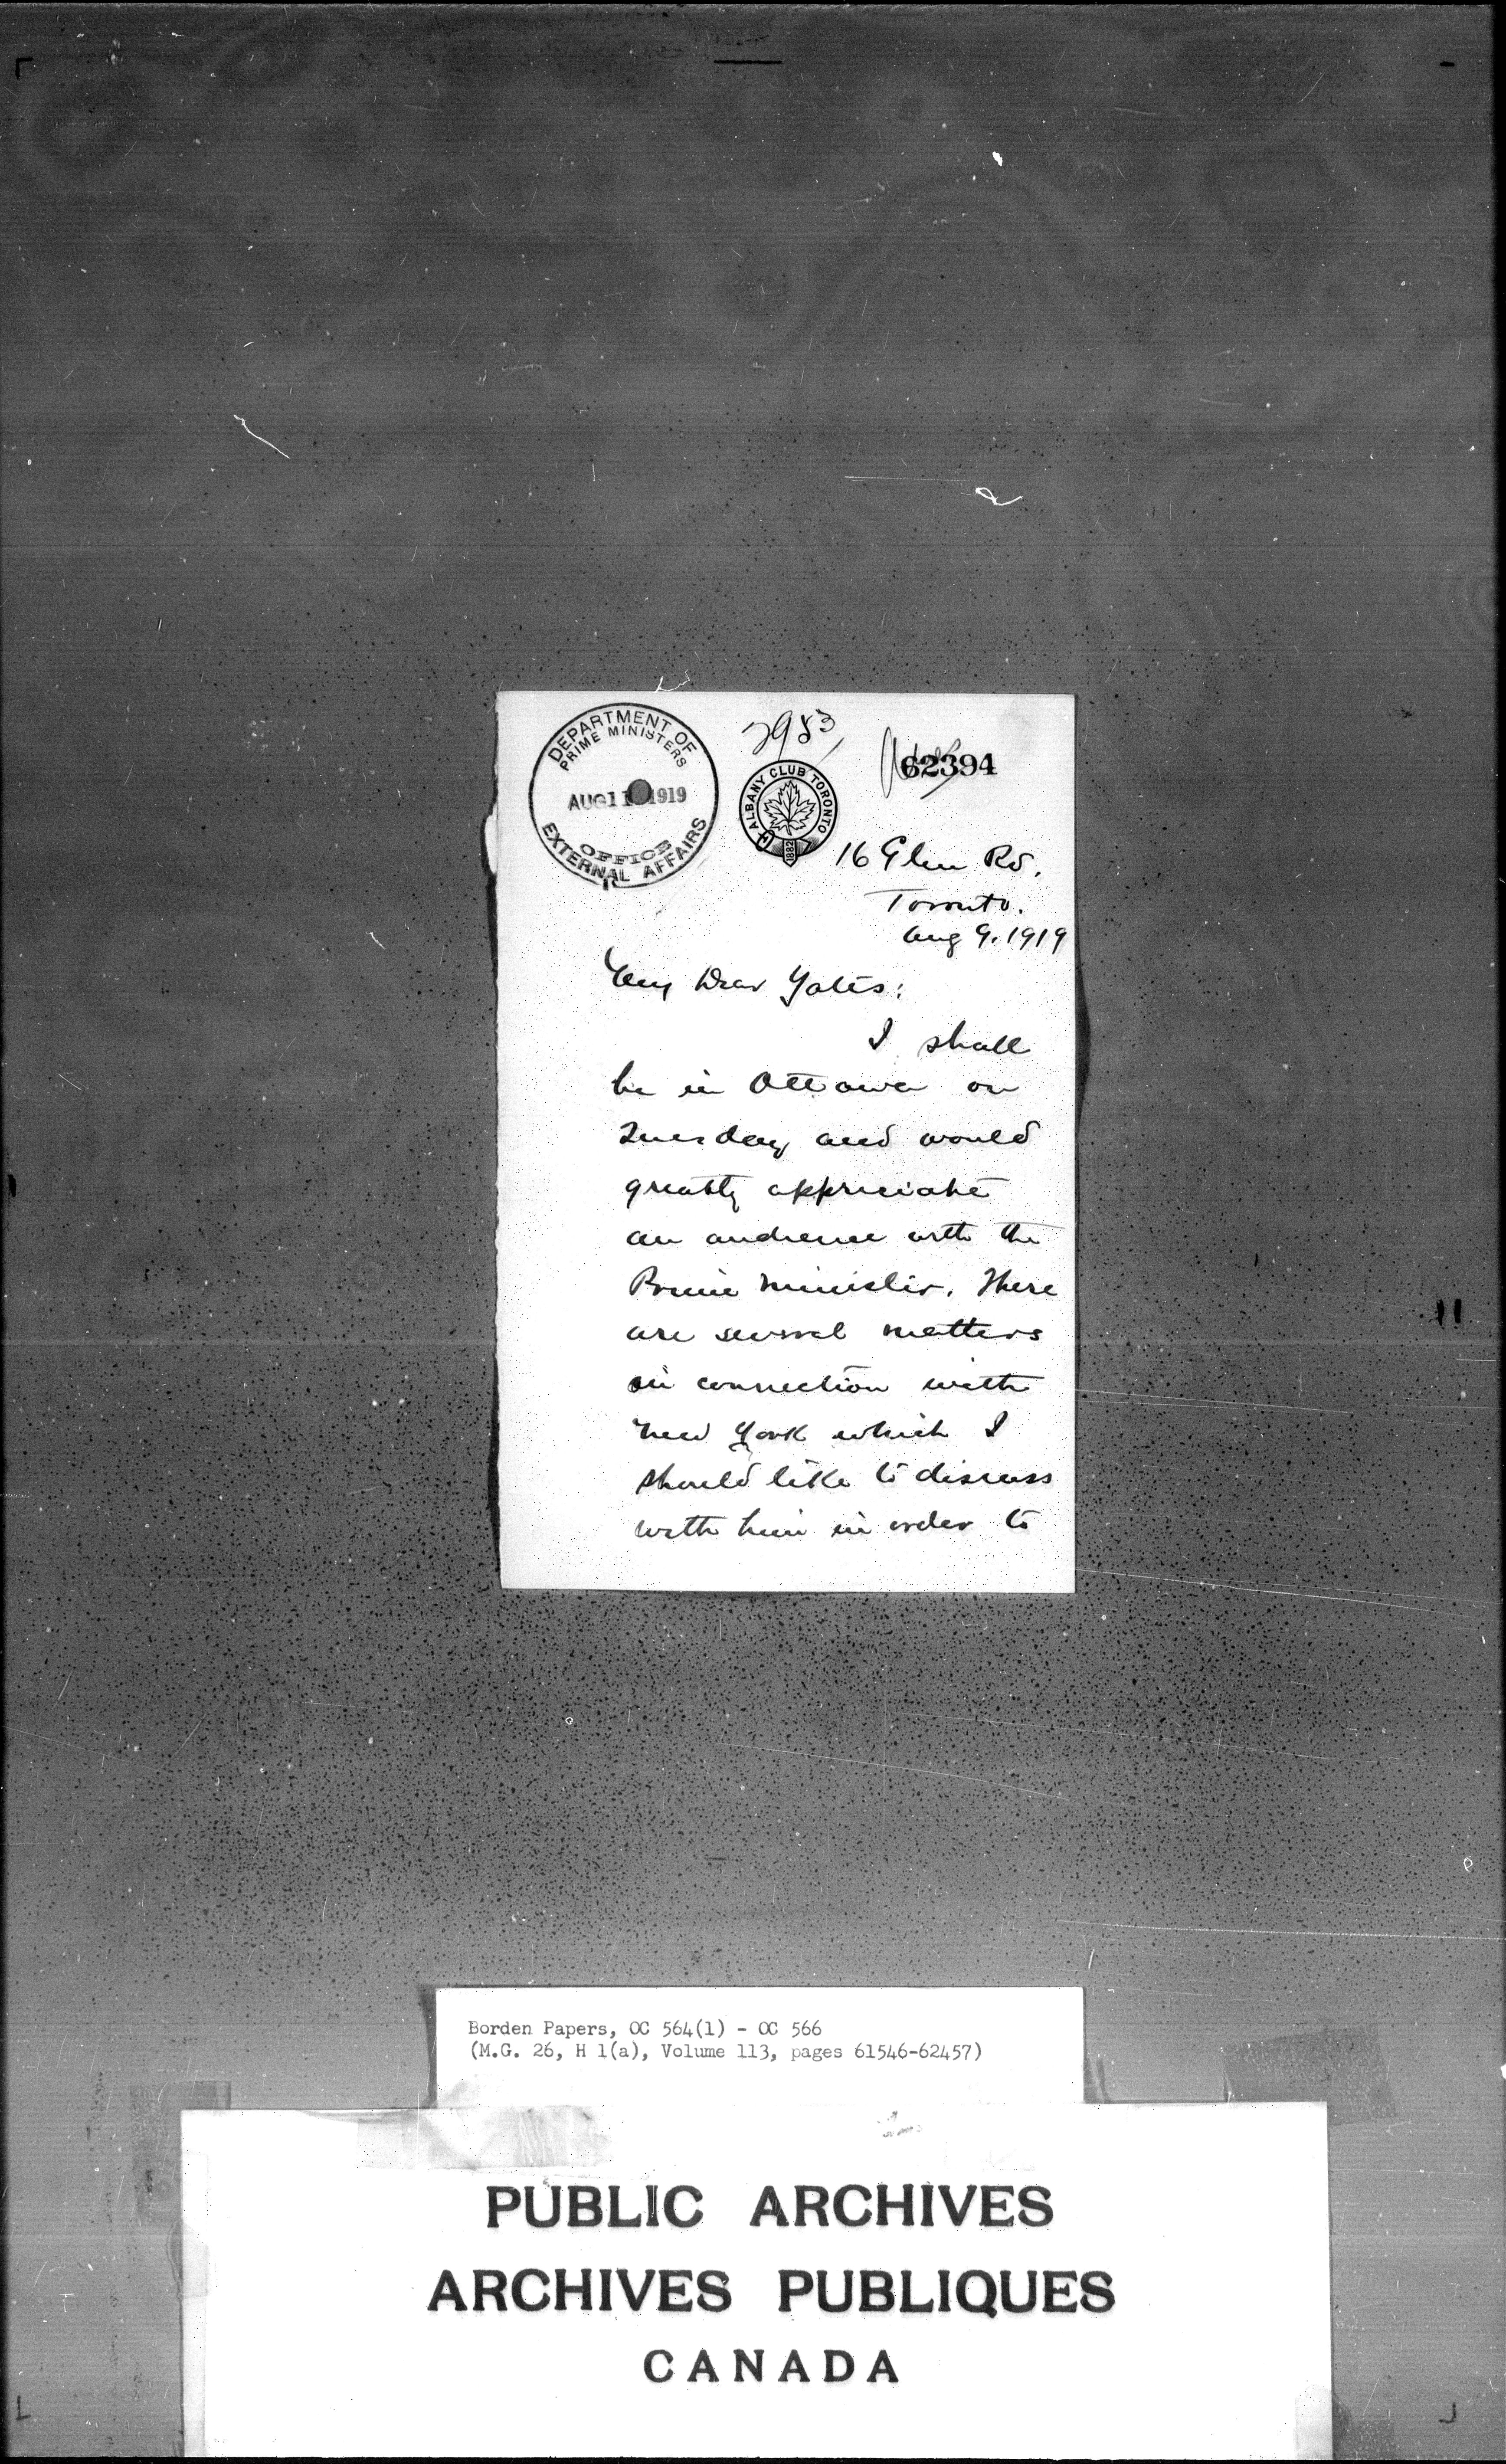 DEPARTMENT OF
PRIME MINISTERS
AUG 11 1919
OFFICE
EXTERNAL AFFAIRS
2983
ALBANY CLUB TORONTO
1882
62394
16 Glen Rd.
Toronto.
Aug 9. 1919
My Dear Yates:
I shall
be in Ottawa on
Tuesday and would
greatly appreciate
an audience with the
Prime Minister. There
are several matters
in connection with
New York which I
should like to discuss
with him in order to
Borden Papers, OC 564(1) - OC 566
(M.G. 26, H 1(a), Volume 113, pages 61546-62457)
PUBLIC ARCHIVES
ARCHIVES PUBLIQUES
CANADA